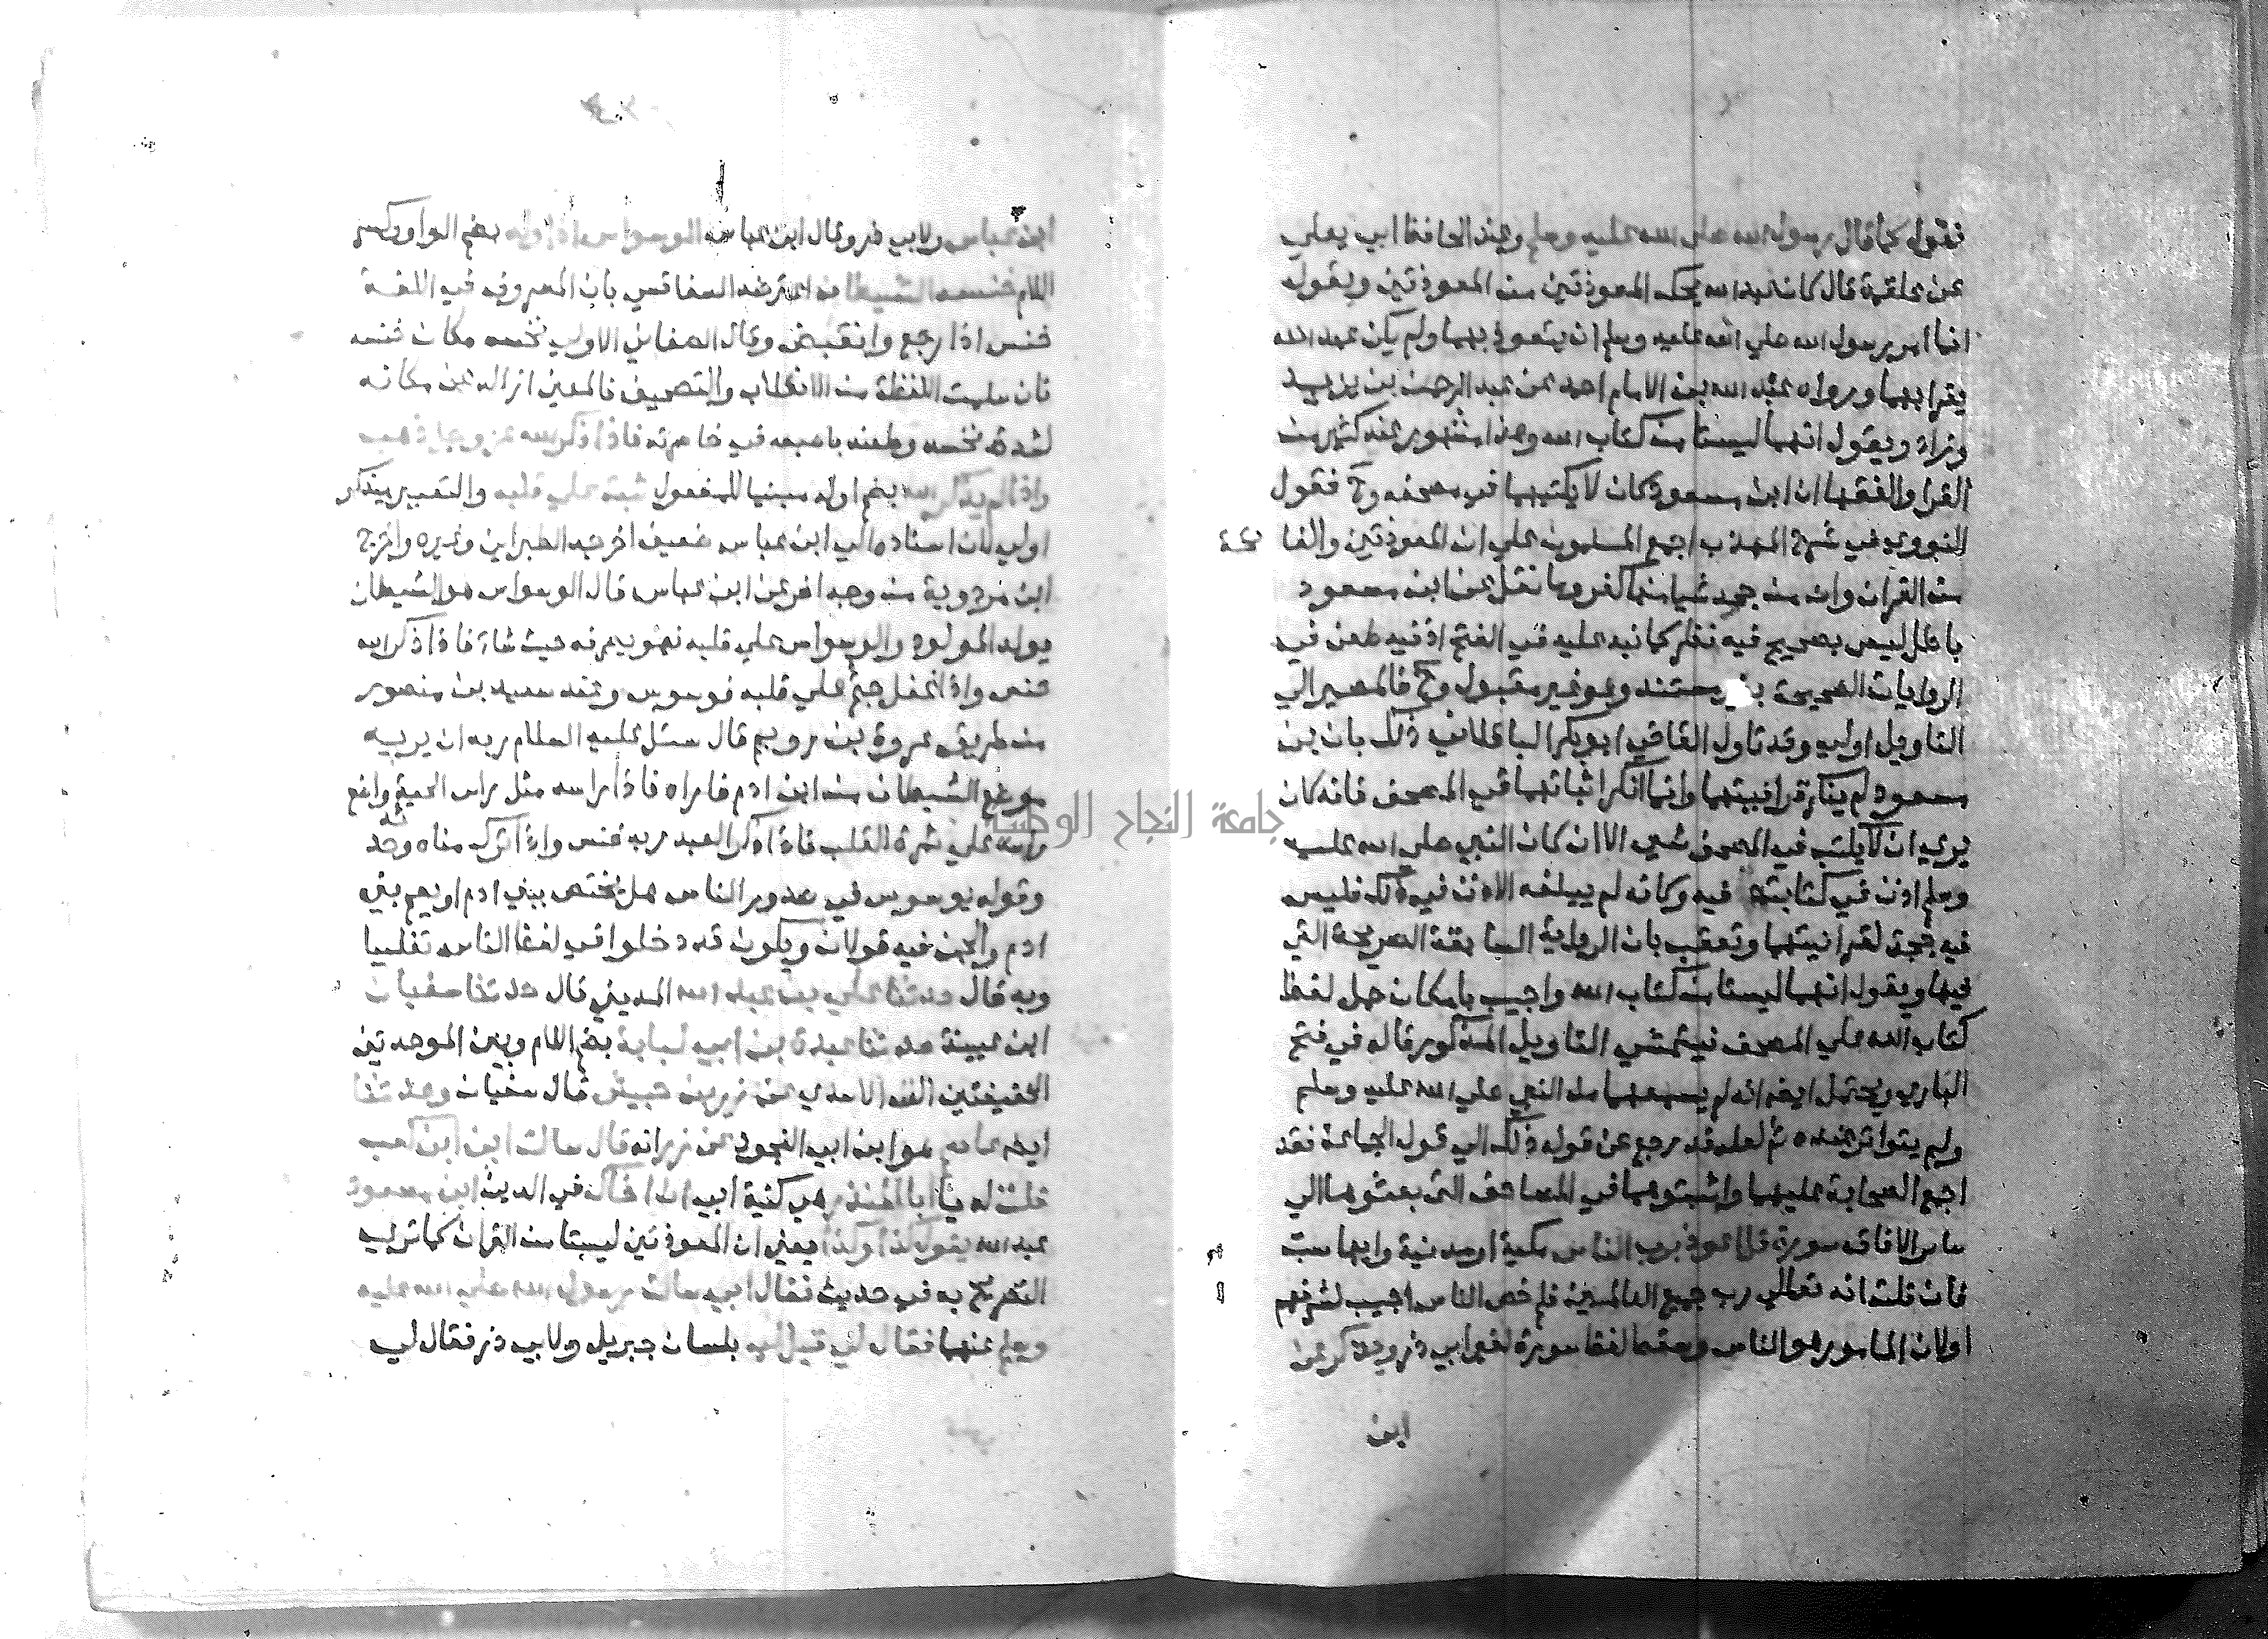 فنقول كما قال رسول الله صلى الله عليه وسلم وعند الحافظ ابي يعلي
عن علقمة قال كان عبد الله يحك المعوذتين من المعوذتين ويقول
انما امر رسول الله صلي الله عليه وسلم ان يتعوذ بهما ولم يكن عبد الله
يقرا بهما ورواه عبد الله بن الامام احمد عن عبد الرحمن بن يزيد
وزاد ويقول انهما ليستا من كتاب الله وهذا مشهور عند كثير من
القرا والفقها ان ابن مسعود كان لا يكتبهما في مصحفه وح فقول
النووي في شرح المهذب اجمع المسلمون علي ان المعوذتين والفا تحة
من القران وان من جحد شيا منهما كفر وما نقل عن ابن مسعود
باطل ليس بصحيح فيه نظر كما نبه عليه في الفتح اذ فيه طعن في
الروايات الصحيحة بغير مستند وهو غير مقبول وح فالمصير الي
التاويل اولي وقد تاول القاضي ابو بكر الباقلاني ذلك بان بن
مسعود لم ينكر قرانيتهما وانما انكر اثباتهما في المصحف فانه كان
يري ان لا يكتب في المصحف شي الا ان كان النبي صلي الله عليه
وسلم اذن في كتابته فيه وكانه لم يبلغه الاذن في ذلك فليس
فيه جحد لقرانيتهما وتعقب بان الرواية السابقة الصريحة التي
فيها ويقول انهما ليستا من كتاب الله واجيب بامكان حمل لفظ
كتاب الله علي المصحف فيتمشي التاويل المذكور قاله في فتح
الباري ويحتمل ايضا انه لم يسمعهما من النبي صلي الله عليه وسلم
ولم يتواتر عنده ثم لعله قد رجع عن قوله ذلك الي قول الجماعة فقد
اجمع الصحابة عليهما واثبتوهما في المصاحف التي بعثوها الي
ساير الافاق سورة قل اعوذ برب الناس مكية او مدنية وايها ست
فان قلت انه تعالي رب جميع العالمين فلم خص الناس اجيب لشرفهم
اولان المامور هو الناس وسقط لفظ سورة لغير ابي ذر ويذكر عن
ابن
ابن عباس ولابي ذر وقال ابن عباس الوسواس اذا ولد بضم الواو وكسر
اللام خنسه الشيطان اعترضه السفاقسي بان المعروف في اللغة
خنس اذا رجع وانقبض وقال الصغاني الاولي نخسه مكان خنسه
فان سلمت اللفظة من الانقلاب والتصحيف فالمعني ازاله عن مكانه
لشدة نخسه وطعنه باصبعه في خاصرته فاذا ذكر الله عز وجل ذهب
واذا لم يذكر الله بضم اوله مبنيا للمفعول ثبت علي قلبه والتعبير بيذكر
اولي لان اسناده الي ابن عباس ضعيف اخرجه الطبراني وغيره واخرج
ابن مردوية من وجه اخر عن ابن عباس قال الوسواس هو الشيطان
يولد المولود والوسواس علي قلبه فهو يصرفه حيث شاء فاذا ذكر الله
خنس واذا غفل جثم علي قلبه فوسوس وعند سعيد بن منصور
من طريق عروة بن رويم قال سئل عليه السلام ربه ان يريه
موضع الشيطان من ابن ادم فاراه فاذا راسه مثل راس الحية واضع
راسه علي ثمرة القلب فاذا ذكر العبد ربه خنس واذا ترك مناه وحدثه
وقوله يوسوس في صدور الناس هل يختص ببني ادم او يعم بني
ادم والجن فيه قولان ويكون قد دخلوا في لفظ الناس تغليبا
وبه قال حدثنا علي بن عبد الله المديني قال حدثنا سفيان
ابن عيينة حدثنا عبدة بن ابي لبابة بضم اللام وبين الموحدتين
الخفيفتين الف الاسدي عن زر بن حبيش قال سفيان وحدثنا
ايضا عاصم هو ابن ابي النجود عن زر انه قال سالت ابي ابن كعب
قلت له يا ابا المنذر هي كنية ابي ان اخاك في الدين ابن مسعود
عبد الله يقول كذا وكذا يعني ان المعوذتين ليستا من القران كما تري
التصريح به في حديث فقال ابي سالت رسول الله صلي الله عليه
وسلم عنهما فقال لي قيل لي بلسان جبريل ولابي ذر فقال لي
جامعة النجاح الوطنية